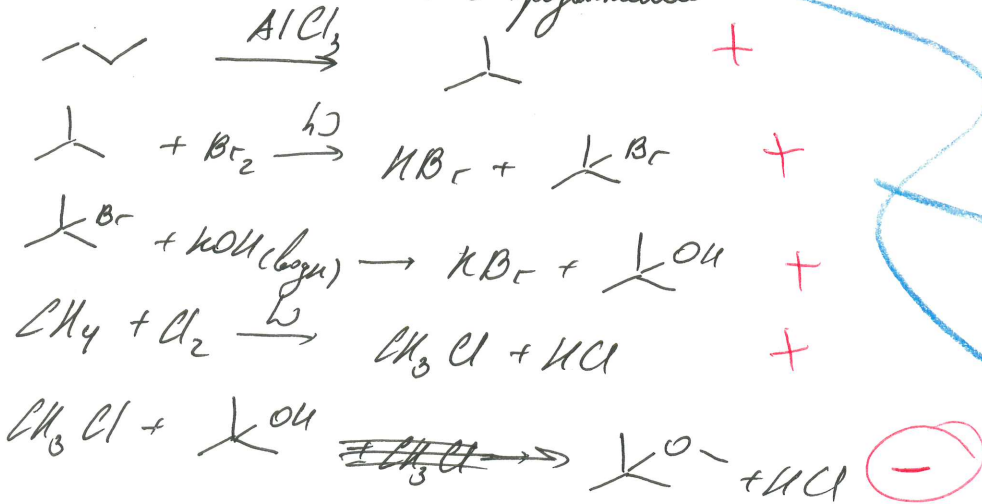 AlCl₃ +
+ Br₂ hν HBr + Br +
Br + KOH (водн) → KBr + OH +
CH₄ + Cl₂ hν CH₃Cl + HCl +
CH₃Cl + OH + CH₃Cl → O + HCl −